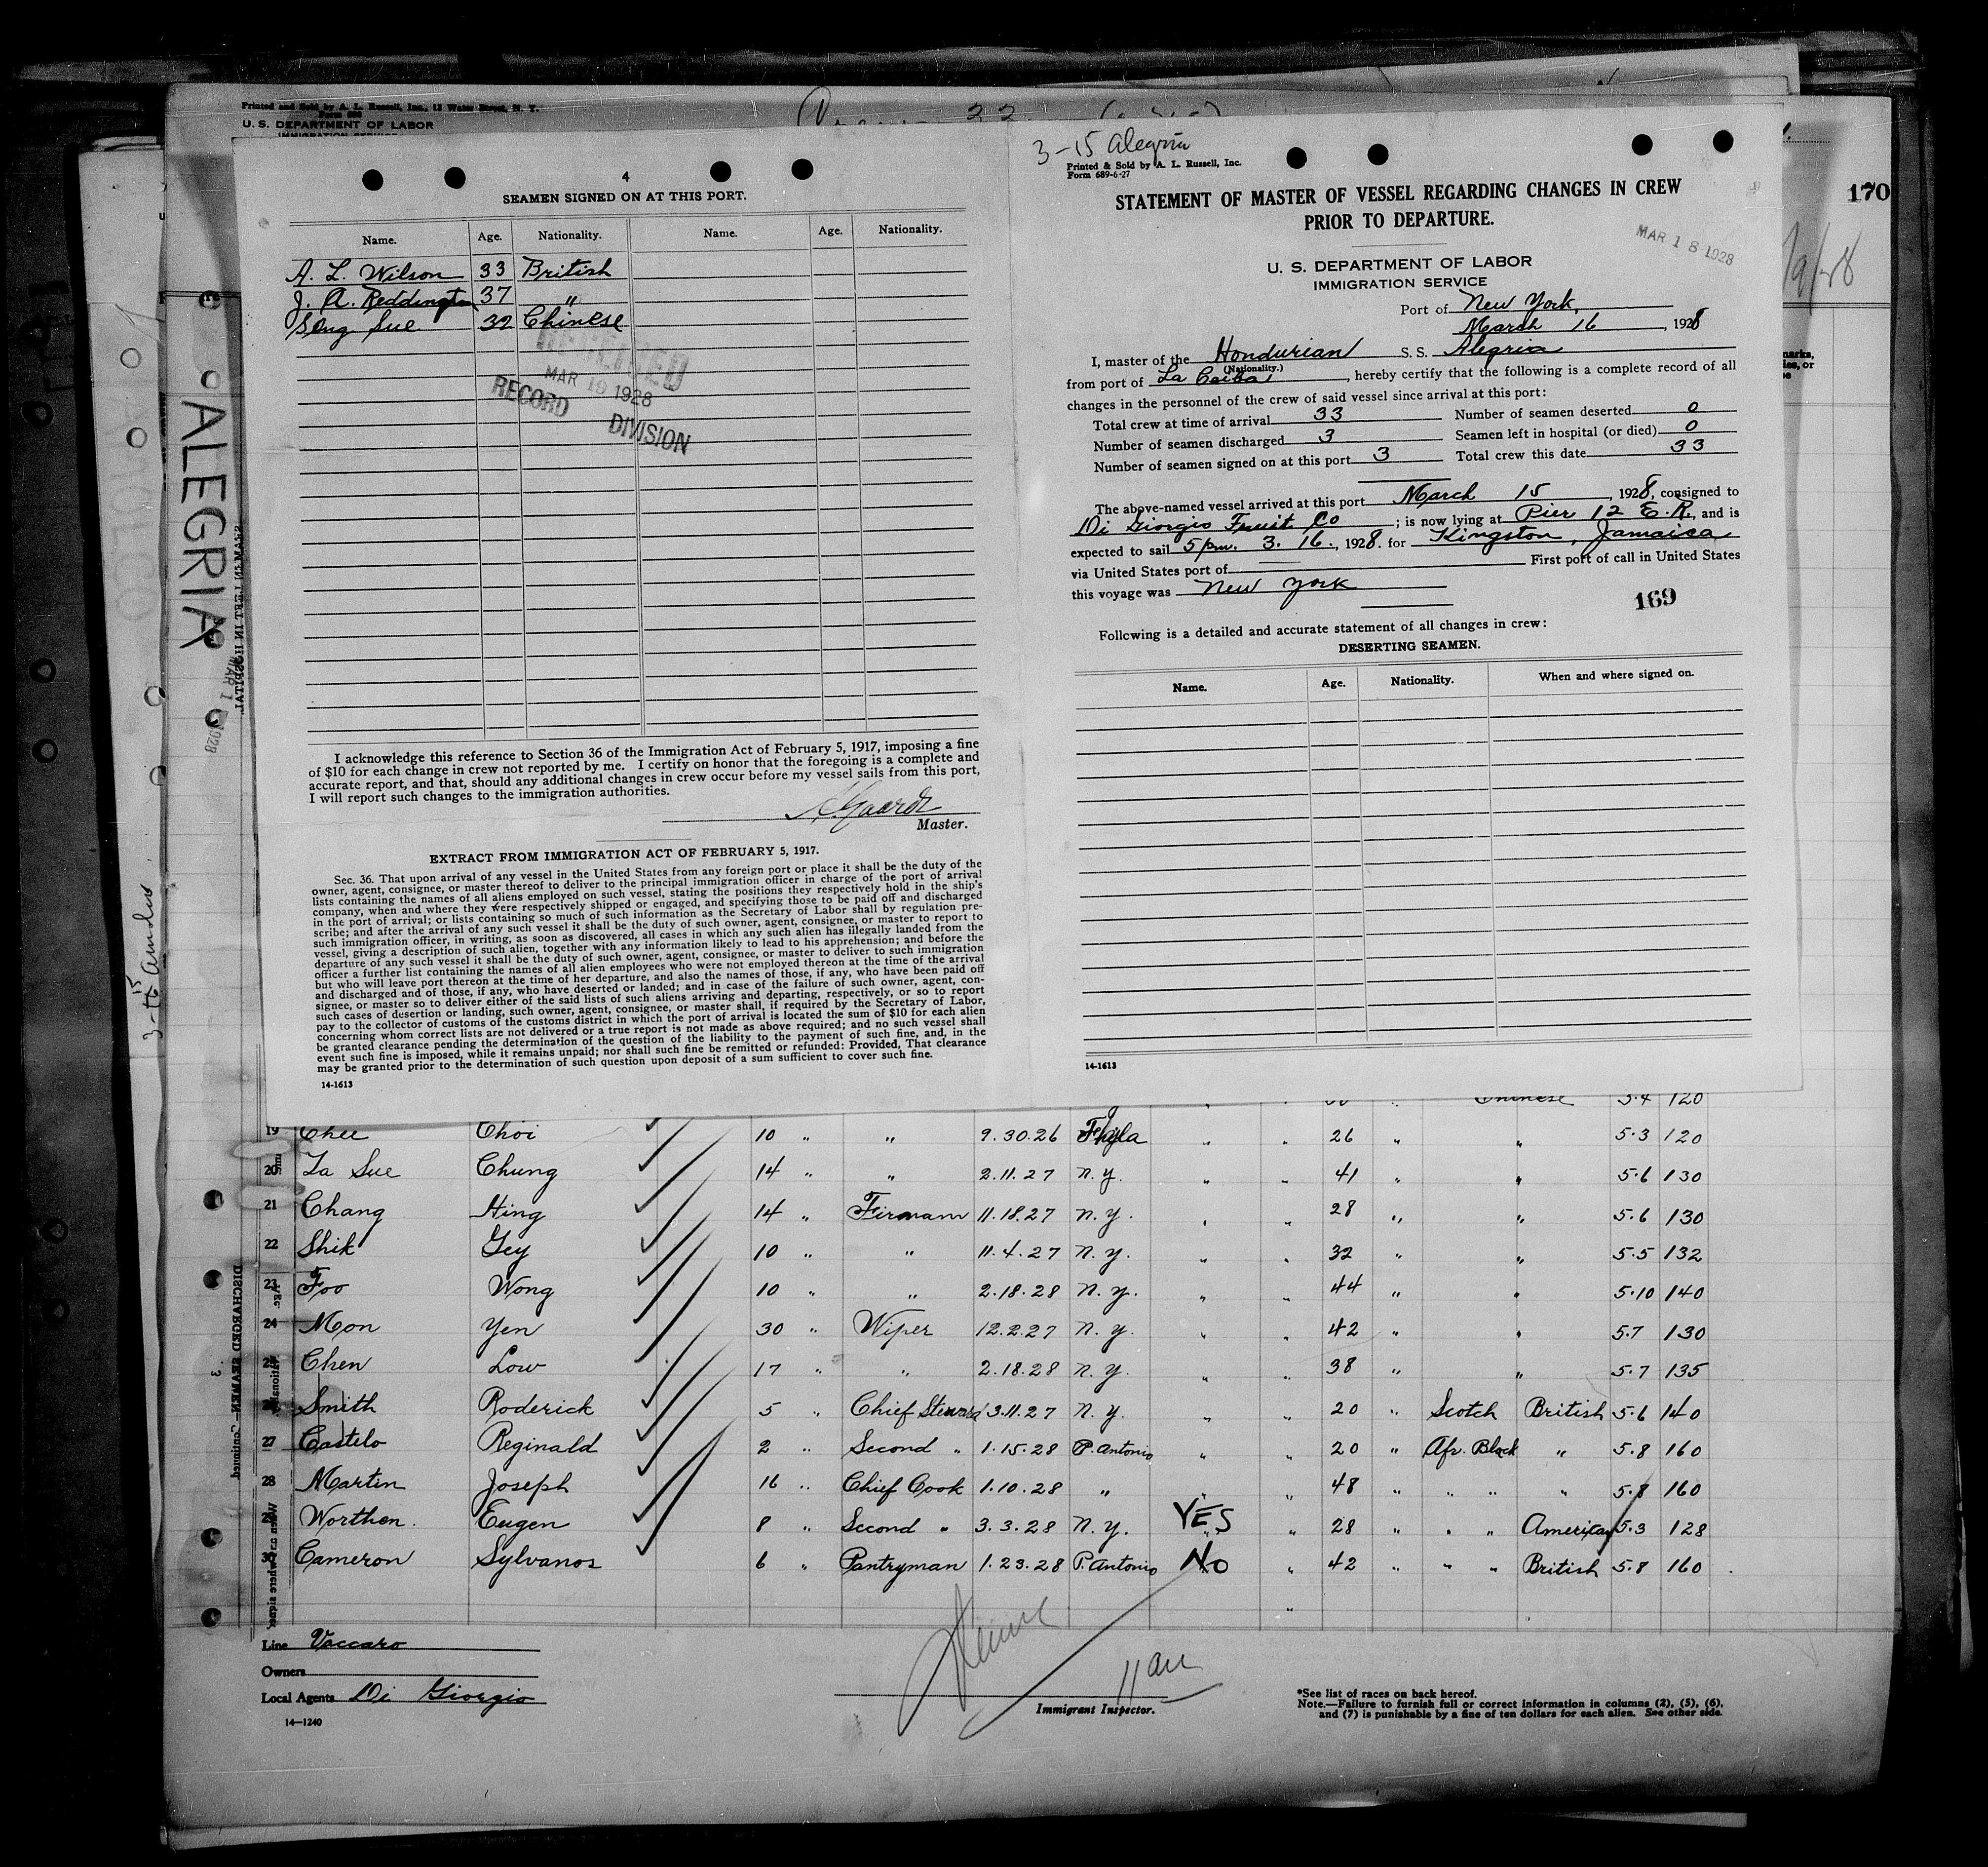 Printed and Sold by A. L. Russell, Inc., 12 Water Street, N. Y.
U. S. DEPARTMENT OF LABOR
IMMIGRATION SERVICE
170
ALEGRIA
4
SEAMEN SIGNED ON AT THIS PORT.
Name. Age. Nationality. Name. Age. Nationality.
A. L. Wilson 33 British
J. A. Reddington 37 "
Seng Sue 32 Chinese
RECEIVED
MAR 19 1928
RECORD DIVISION
I acknowledge this reference to Section 36 of the Immigration Act of February 5, 1917, imposing a fine
of $10 for each change in crew not reported by me. I certify on honor that the foregoing is a complete and
accurate report, and that, should any additional changes in crew occur before my vessel sails from this port,
I will report such changes to the immigration authorities.
Master.
EXTRACT FROM IMMIGRATION ACT OF FEBRUARY 5, 1917.
Sec. 36. That upon arrival of any vessel in the United States from any foreign port or place it shall be the duty of the
owner, agent, consignee, or master thereof to deliver to the principal immigration officer in charge of the port of arrival
lists containing the names of all aliens employed on such vessel, stating the positions they respectively hold in the ship's
company, when and where they were respectively shipped or engaged, and specifying those to be paid off and discharged
in the port of arrival; or lists containing so much of such information as the Secretary of Labor shall by regulation pre-
scribe; and after the arrival of any such vessel it shall be the duty of such owner, agent, consignee, or master to report to
such immigration officer, in writing, as soon as discovered, all cases in which any such alien has illegally landed from the
vessel, giving a description of such alien, together with any information likely to lead to his apprehension; and before the
departure of any such vessel it shall be the duty of such owner, agent, consignee, or master to deliver to such immigration
officer a further list containing the names of all alien employees who were not employed thereon at the time of the arrival
but who will leave port thereon at the time of her departure, and also the names of those, if any, who have been paid off
and discharged and of those, if any, who have deserted or landed; and in case of the failure of such owner, agent, con-
signee, or master so to deliver either of the said lists of such aliens arriving and departing, respectively, or so to report
such cases of desertion or landing, such owner, agent, consignee, or master shall, if required by the Secretary of Labor,
pay to the collector of customs of the customs district in which the port of arrival is located the sum of $10 for each alien
concerning whom correct lists are not delivered or a true report is not made as above required; and no such vessel shall
be granted clearance pending the determination of the question of the liability to the payment of such fine, and, in the
event such fine is imposed, while it remains unpaid; nor shall such fine be remitted or refunded: Provided, That clearance
may be granted prior to the determination of such question upon deposit of a sum sufficient to cover such fine.
14-1613
3-15 Alegria
Printed & Sold by A. L. Russell, Inc.
Form 689-6-27
STATEMENT OF MASTER OF VESSEL REGARDING CHANGES IN CREW
PRIOR TO DEPARTURE.
MAR 18 1928
U. S. DEPARTMENT OF LABOR
IMMIGRATION SERVICE
Port of New York,
March 16, 1928
I, master of the Hondurian S. S. Alegria
(Nationality.)
from port of La Ceiba, hereby certify that the following is a complete record of all
changes in the personnel of the crew of said vessel since arrival at this port:
Total crew at time of arrival 33 Number of seamen deserted 0
Number of seamen discharged 3 Seamen left in hospital (or died) 0
Number of seamen signed on at this port 3 Total crew this date 33
The above-named vessel arrived at this port March 15, 1928, consigned to
Di Giorgio Fruit Co; is now lying at Pier 12 E.R., and is
expected to sail 5 pm. 3. 16., 1928. for Kingston, Jamaica
via United States port of First port of call in United States
this voyage was New York
169
Following is a detailed and accurate statement of all changes in crew:
DESERTING SEAMEN.
Name. Age. Nationality. When and where signed on.
14-1613
Chinese 5.4 120
19 Chee Choi 10 " " 9.30.26 " " 26 " " 5.3 120
20 Za Sue Chung 14 " " 2.11.27 N.Y. " " 41 " " 5.6 130
21 Chang Hing 14 " Fireman 11.18.27 N.Y. " " 28 " " 5.6 130
22 Shik Gey 10 " " 11.4.27 N.Y. " " 32 " " 5.5 132
23 Foo Wong 10 " " 2.18.28 N.Y. " " 44 " " 5.10 140
24 Mon Yen 30 " Wiper 12.2.27 N.Y. " " 42 " " 5.7 130
25 Chen Low 17 " " 2.18.28 N.Y. " " 38 " " 5.7 135
26 Smith Roderick 5 " Chief Steward 3.11.27 N.Y. " " 20 " Scotch British 5.6 140
27 Castelo Reginald 2 " Second " 1.15.28 P. Antonio " " 20 " Afr. Black " 5.8 160
28 Martin Joseph 16 " Chief Cook 1.10.28 " " " 48 " " " " 5.8 160
29 Worthen Eugen 8 " Second " 3.3.28 N.Y. YES " 28 " " " American 5.3 128
30 Cameron Sylvanos 6 " Pantryman 1.23.28 P. Antonio No " 42 " " " British 5.8 160
Line Vaccaro
Owners
Local Agents Di Giorgio
14—1240
Immigrant Inspector.
*See list of races on back hereof.
Note.—Failure to furnish full or correct information in columns (2), (5), (6),
and (7) is punishable by a fine of ten dollars for each alien. See other side.